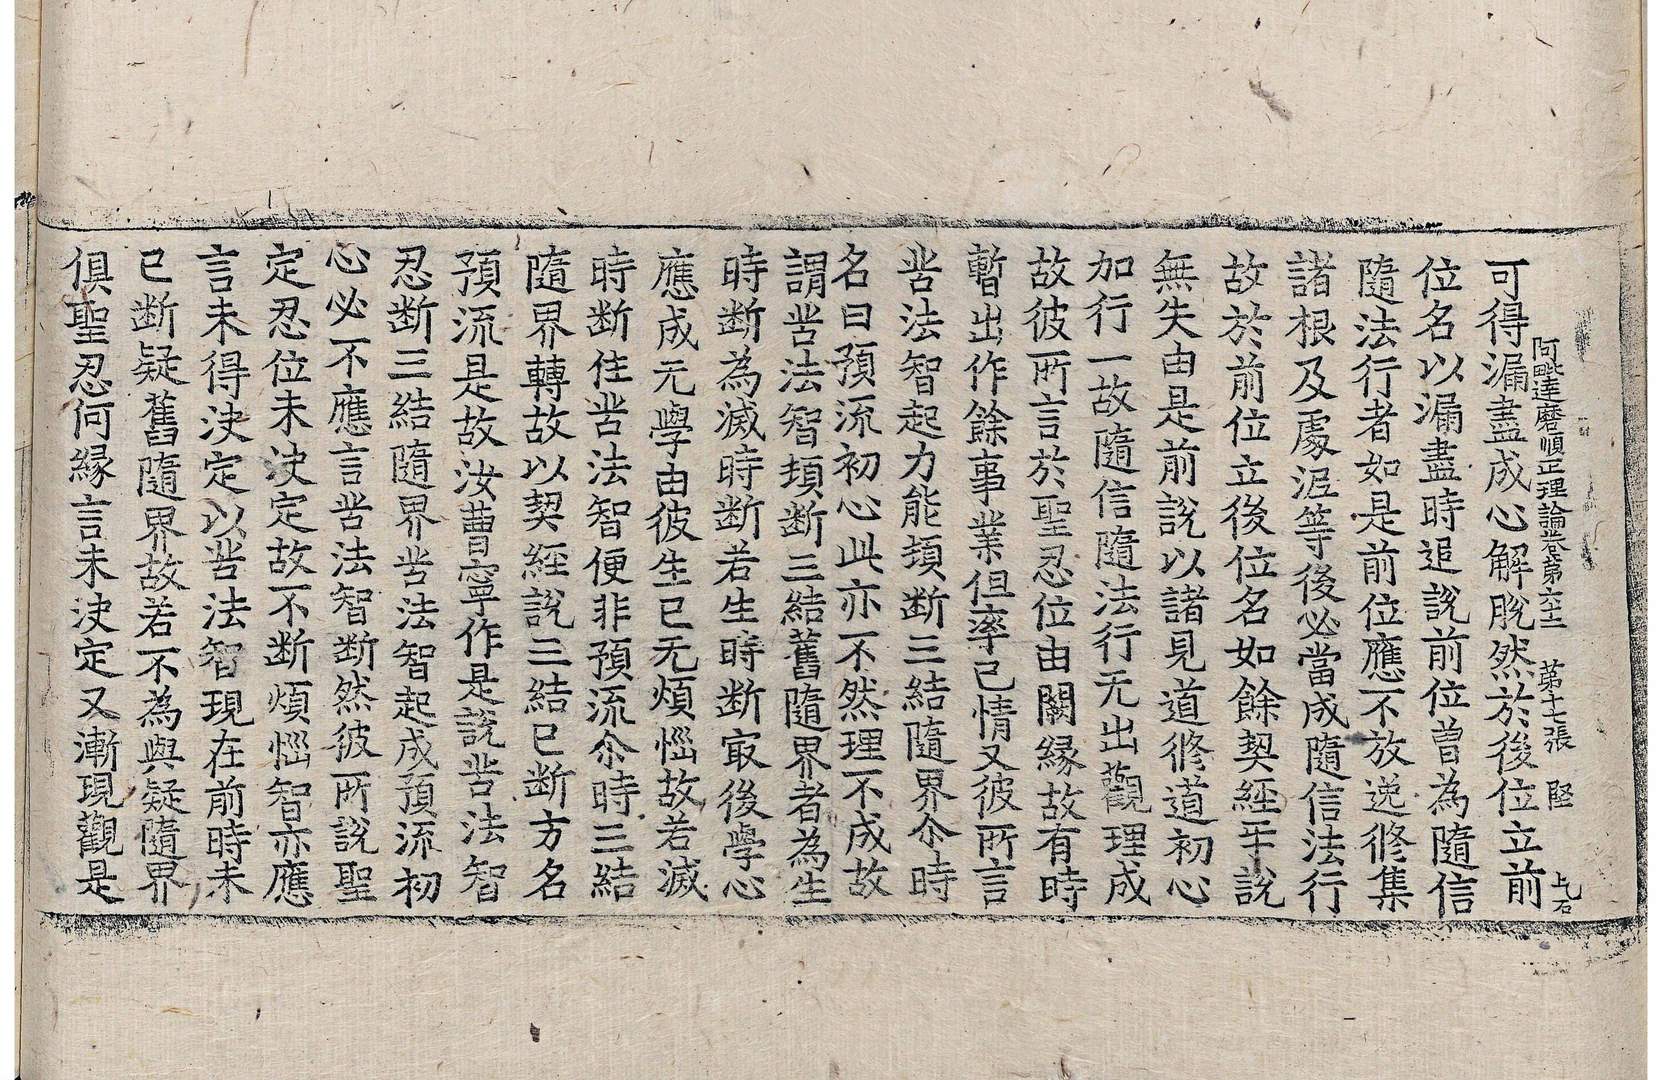 阿毗達磨順正理論卷第六十二 第十七張 堅
可得漏盡成心解脫然於後位立前
位名以漏盡時追說前位曾為隨信
隨法行者如是前位應不放逸修集
諸根及處涅等後必當成隨信法行
故於前位立後位名如餘契經乎說
無失由是前說以諸見道修道初心
加行一故隨信隨法行无出觀理成
故彼所言於聖忍位由闕緣故有時
暫出作餘事業但率已情又彼所言
苦法智起力能頓斷三結隨界尒時
名曰預流初心此亦不然理不成故
謂苦法智頓斷三結舊隨界者為生
時斷為滅時斷若生時斷冣後學心
應成无學由彼生已无煩惱故若滅
時斷住苦法智便非預流尒時三結
隨界轉故以契經說三結已斷方名
預流是故汝曹寧作是說苦法智
忍斷三結隨界苦法智起成預流初
心必不應言苦法智斷然彼所說聖
定忍位未决定故不斷煩惱智亦應
言未得决定以苦法智現在前時未
已斷疑舊隨界故若不為與疑隨界
俱聖忍何緣言未决定又漸現觀是